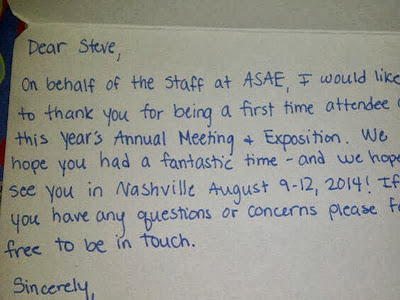 Dear Steve,
On behalf of the Staff at ASAE, I would like
to thank you for being a first time attendee
this year's Annual Meeting + Exposition. We
hope you had a fantastic time - and we hope
see you in Nashville August 9-12, 2014! If
you have any questions or concerns please
free to be in touch.
Sincerely,